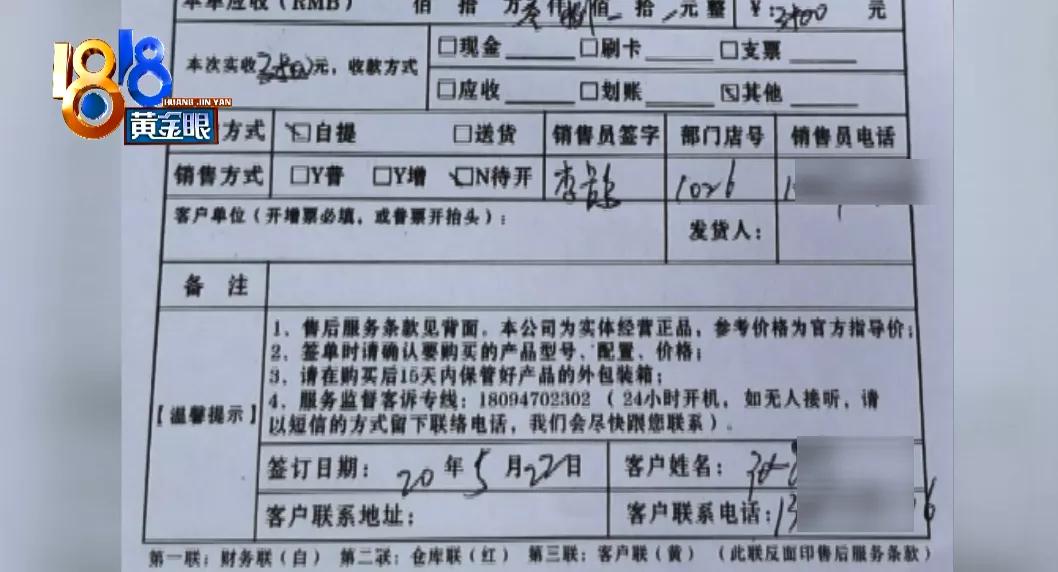 本单应收（RMB） 佰 拾 万 仟 佰 拾 元整 ￥：3800 元
1818
HUANG JIN YAN
黄金眼
本次实收3800元，收款方式 □现金 □刷卡 □支票
□应收 □划账 □其他
方式 □自提 □送货 销售员签字 部门店号 销售员电话
销售方式 □Y普 □Y增 □N待开 李 1026 1
客户单位（开增票必填，或普票开抬头）： 发货人：
备 注
【温馨提示】
1、售后服务条款见背面。本公司为实体经营正品，参考价格为官方指导价；
2、签单时请确认要购买的产品型号、配置、价格；
3、请在购买后15天内保管好产品的外包装箱；
4、服务监督客诉专线：18094702302（24小时开机，如无人接听，请
以短信的方式留下联络电话，我们会尽快跟您联系）。
签订日期： 20年5月22日 客户姓名：
客户联系地址： 客户联系电话：13 6
第一联：财务联（白） 第二联：仓库联（红） 第三联：客户联（黄） （此联反面印售后服务条款）